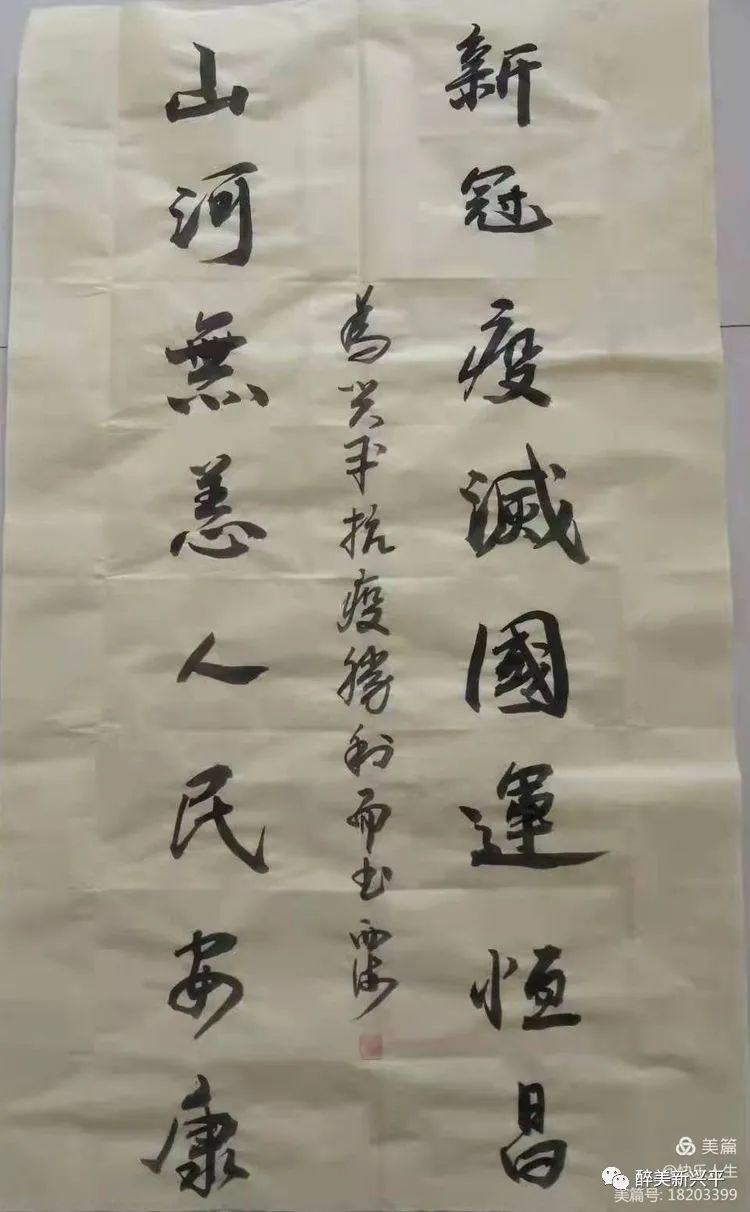 新冠疫滅國運恒昌
為兴平抗疫勝利而书
山河無恙人民安康
美篇
@快乐人生
醉美新兴平
美篇号: 18203399